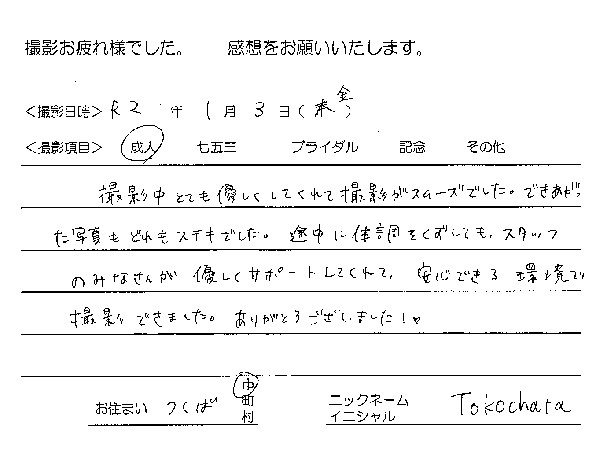 撮影お疲れ様でした。 感想をお願いいたします。
<撮影日時> R2 年 1月 3日(金)
<撮影項目> 成人 七五三 ブライダル 記念 その他
撮影中とても優しくしてくれて撮影がスムーズでした。できあがっ
た写真もどれもステキでした。途中に体調をくずしても、スタッフ
のみなさんが優しくサポートしてくれて、安心できる環境で
撮影できました。ありがとうございました!♥
お住まい つくば 市町村 ニックネーム イニシャル Tokochara